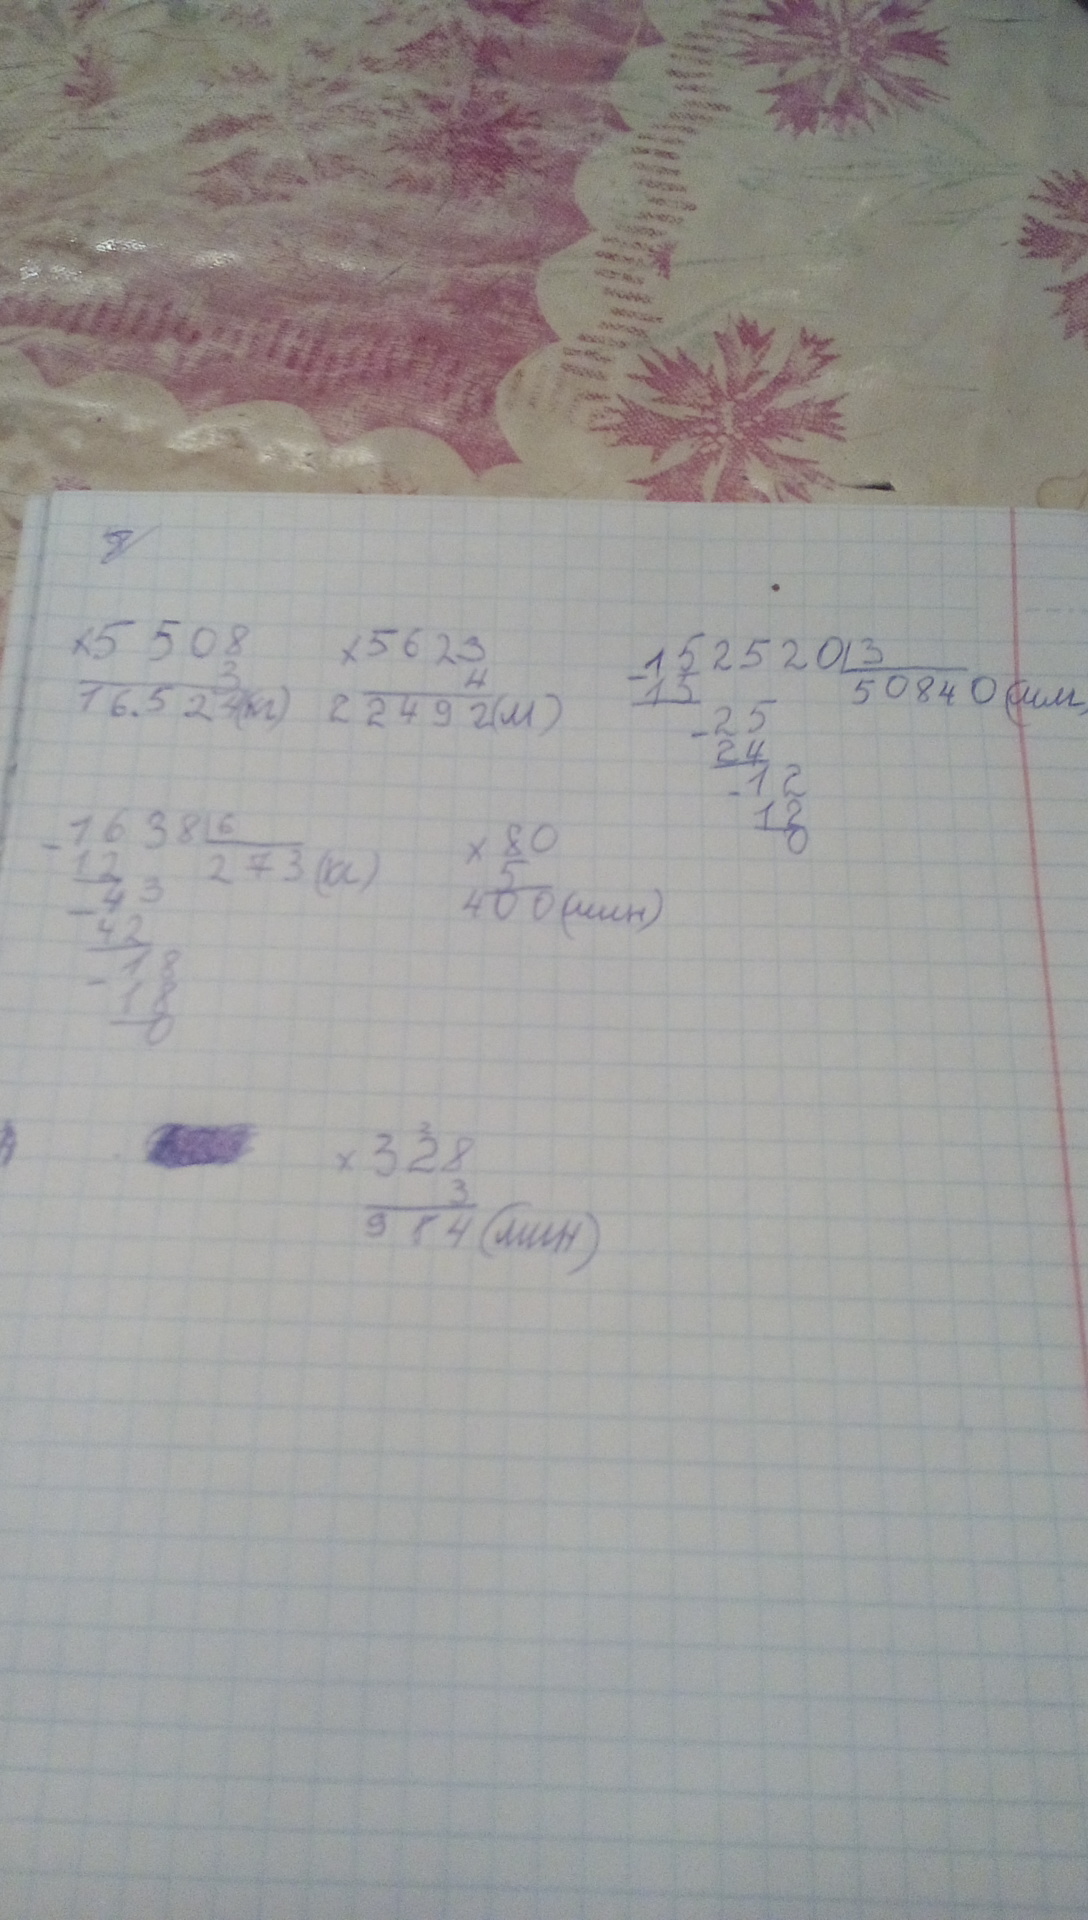 8
×5508 ×5623 -152520|3
3 4 15 50840(мм)
16.524(кг) 22492(м)
-25
24
-12
12
0
-1638|6 ×80
12 273(кг) 5
-43 400(мин)
42
-18
18
0
2
×328
3
984(мин)